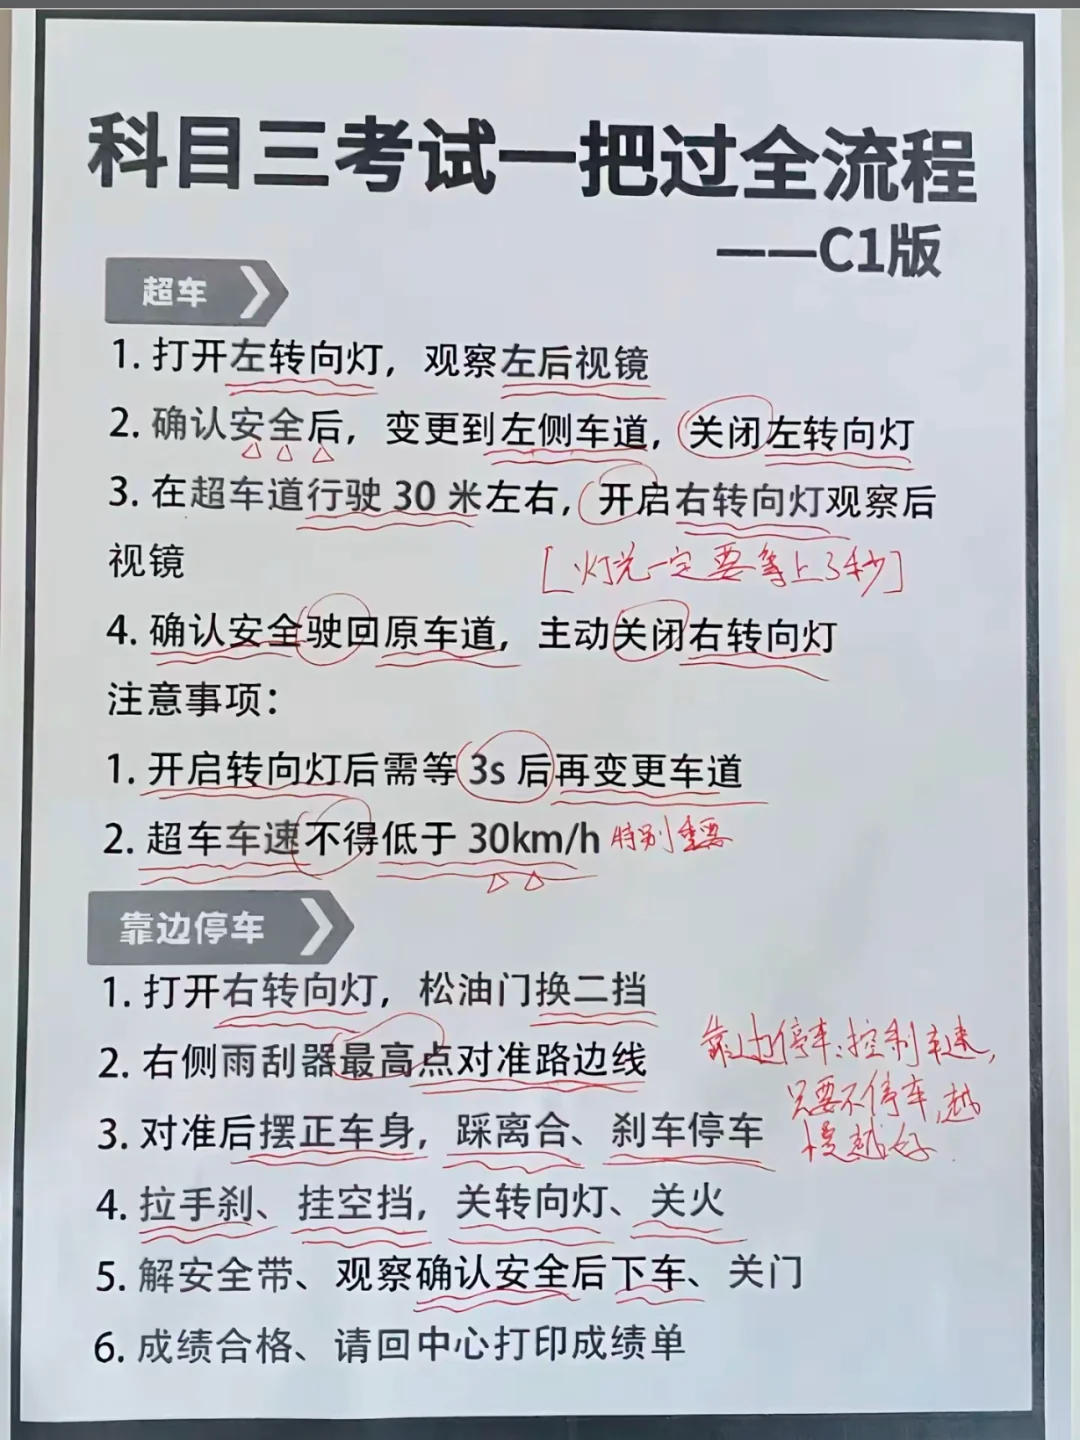 科目三考试一把过全流程
——C1版
超车
1. 打开左转向灯，观察左后视镜
2. 确认安全后，变更到左侧车道，关闭左转向灯
3. 在超车道行驶 30 米左右，开启右转向灯观察后
视镜
[灯光一定要等上3秒]
4. 确认安全驶回原车道，主动关闭右转向灯
注意事项：
1. 开启转向灯后需等 3s 后再变更车道
2. 超车车速不得低于 30km/h 特别重要
靠边停车
1. 打开右转向灯，松油门换二挡
2. 右侧雨刮器最高点对准路边线
靠边停车：控制车速，
只要不停车，越
慢越好
3. 对准后摆正车身，踩离合、刹车停车
4. 拉手刹、挂空挡，关转向灯、关火
5. 解安全带、观察确认安全后下车、关门
6. 成绩合格、请回中心打印成绩单